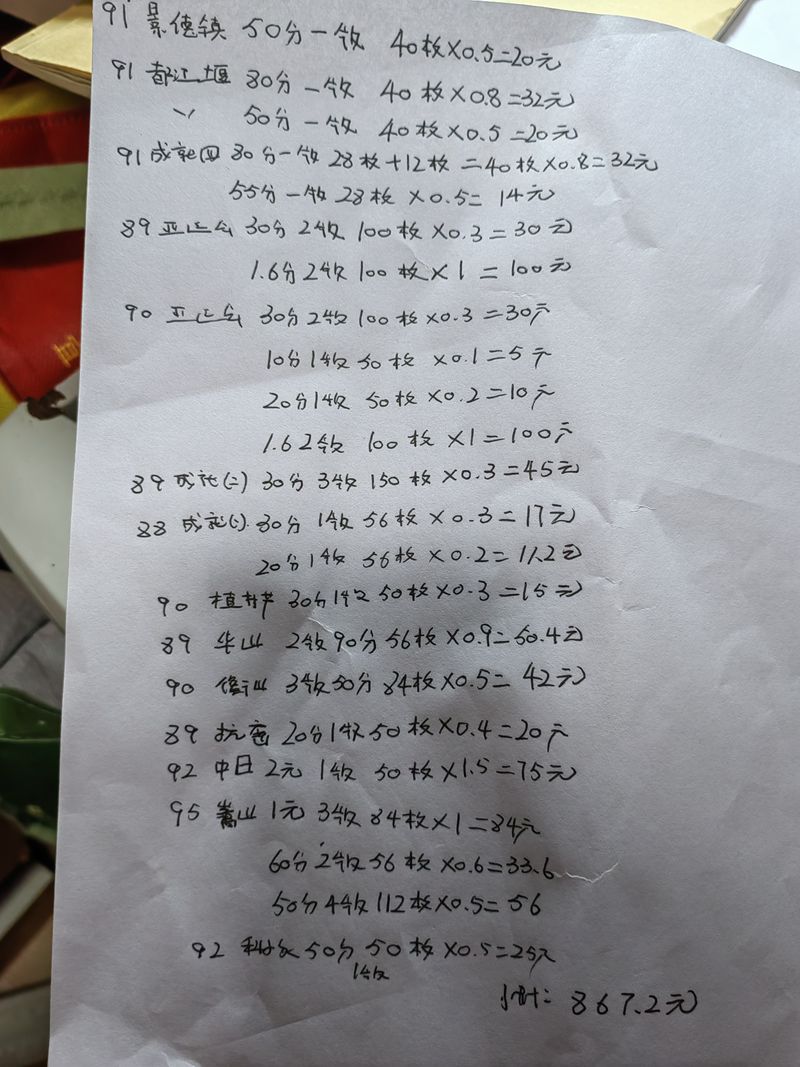 91 景德镇 50分一版 40枚×0.5=20元
91 都江堰 80分一版 40枚×0.8=32元
〃 50分一版 40枚×0.5=20元
91 成就四 80分一版 28枚+12枚=40枚×0.8=32元
55分一版 28枚×0.5=14元
89 亚运会 30分2版100枚×0.3=30元
1.6分2版100枚×1=100元
90 亚运会 30分2版100枚×0.3=30元
10分1版50枚×0.1=5元
20分1版50枚×0.2=10元
1.6 2版 100枚×1=100元
89 成就(二) 30分 3版150枚×0.3=45元
88 成就(一) 30分 1版56枚×0.3=17元
20分1版 56枚×0.2=11.2元
90 植树 30分1版50枚×0.3=15元
89 华山 2版90分56枚×0.9=50.4元
90 衡山 3版50分84枚×0.5=42元
89 抗癌 20分1版50枚×0.4=20元
92 中日 2元 1版 50枚×1.5=75元
95 嵩山 1元 3版84枚×1=84元
60分2版56枚×0.6=33.6
50分4版112枚×0.5=56
92 科学家 50分 50枚×0.5=25元
1版
小计: 867.2元